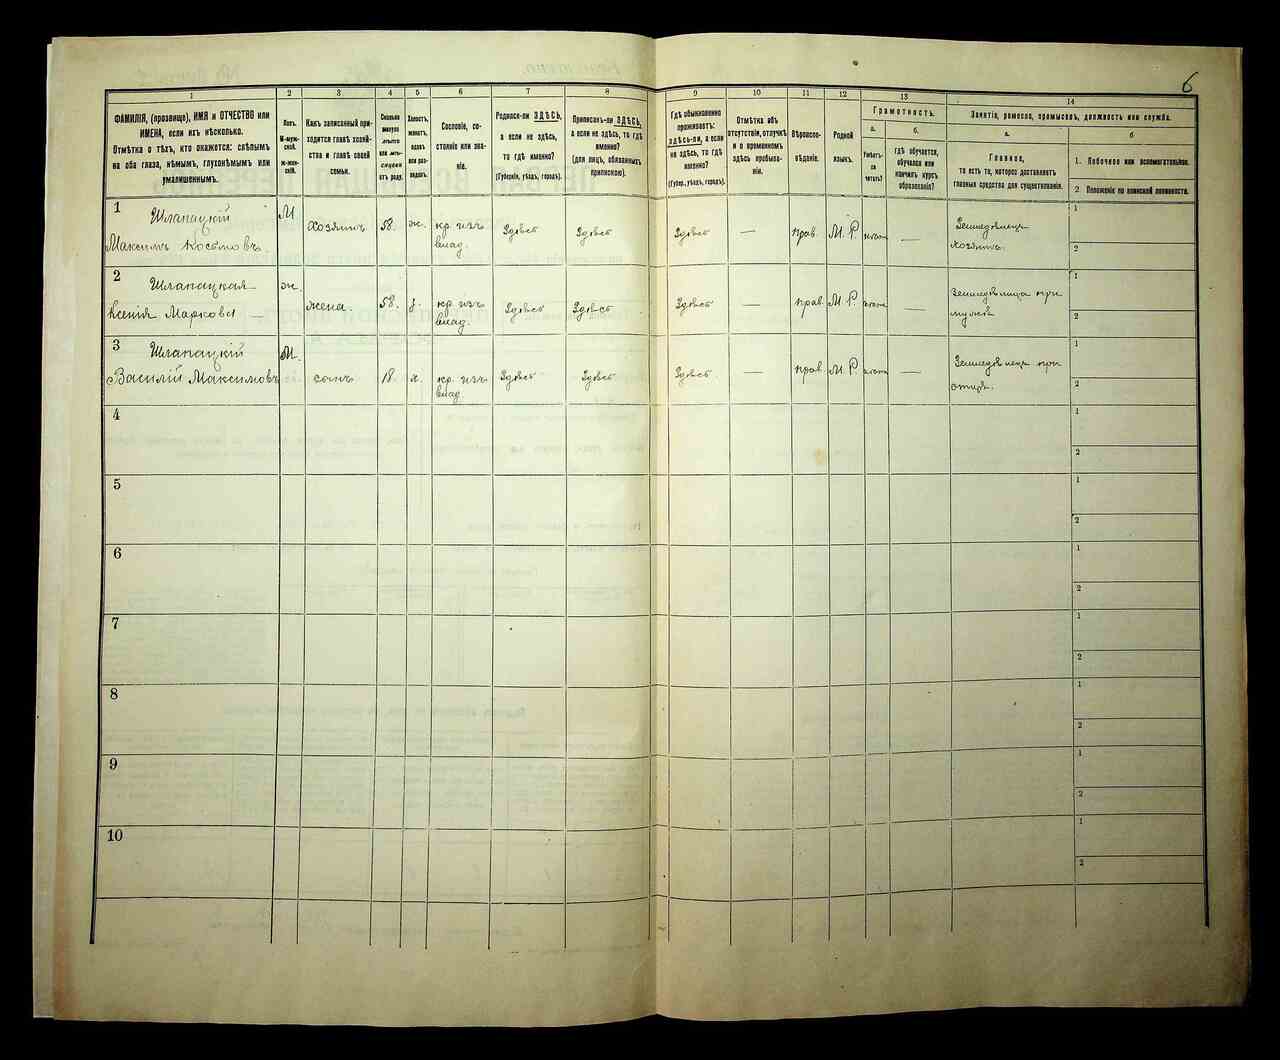 6
1
ФАМИЛІЯ, (прозвище), ИМЯ и ОТЧЕСТВО или
ИМЕНА, если ихъ нѣсколько.
Отмѣтка о тѣхъ, кто окажется: слѣпымъ
на оба глаза, нѣмымъ, глухонѣмымъ или
умалишеннымъ.
2
Полъ.
М-муж-
ской.
ж-жен-
скій.
3
Какъ записанный при-
ходится главѣ хозяй-
ства и главѣ своей
семьи.
4
Сколько
минуло
лѣтъ
или мѣ-
сяцевъ
отъ роду.
5
Холостъ,
женатъ,
вдовъ
или раз-
веденъ.
6
Сословіе, со-
стояніе или зва-
ніе.
7
Родился-ли ЗДѢСЬ,
а если не здѣсь,
то гдѣ именно?
(Губернія, уѣздъ, городъ).
8
Приписанъ-ли ЗДѢСЬ,
а если не здѣсь, то гдѣ
именно?
(для лицъ, обязанныхъ
припискою).
9
Гдѣ обыкновенно
проживаетъ:
здѣсь-ли, а если
не здѣсь, то гдѣ
именно?
(Губер., уѣздъ, городъ).
10
Отмѣтка объ
отсутствіи, отлучкѣ
и о временномъ
здѣсь пребыва-
ніи.
11
Вѣроиспо-
вѣданіе.
12
Родной
языкъ.
13
Грамотность.
а.
Умѣетъ-
ли
читать?
б.
гдѣ обучается,
обучался или
кончилъ курсъ
образованія?
14
Занятіе, ремесло, промыселъ, должность или служба.
а.
Главное,
то есть то, которое доставляетъ
главныя средства для существованія.
б
1. Побочное или вспомогательное.
2. Положеніе по воинской повинности.
1
Шлапацкій
Максимъ Косьмовъ.
М.
Хозяинъ
58.
ж.
кр. изъ
влад.
Здѣсь
Здѣсь
Здѣсь
—
прав.
М. Р.
—
Земледѣлецъ
хозяинъ.
1
2
2
Шлапацкая
Ксенія Маркова —
ж.
жена.
58.
з.
кр. изъ
влад.
Здѣсь
Здѣсь
Здѣсь
—
прав.
М. Р.
земледѣлица при
мужѣ
1
2
3
Шлапацкій
Василій Максимовъ
М.
сынъ
18.
х.
кр. изъ
влад.
Здѣсь
Здѣсь
Здѣсь
—
прав.
М. Р.
—
Земледѣлецъ при
отцѣ.
1
2
4
1
2
5
1
2
6
1
2
7
1
2
8
1
2
9
1
2
10
1
2